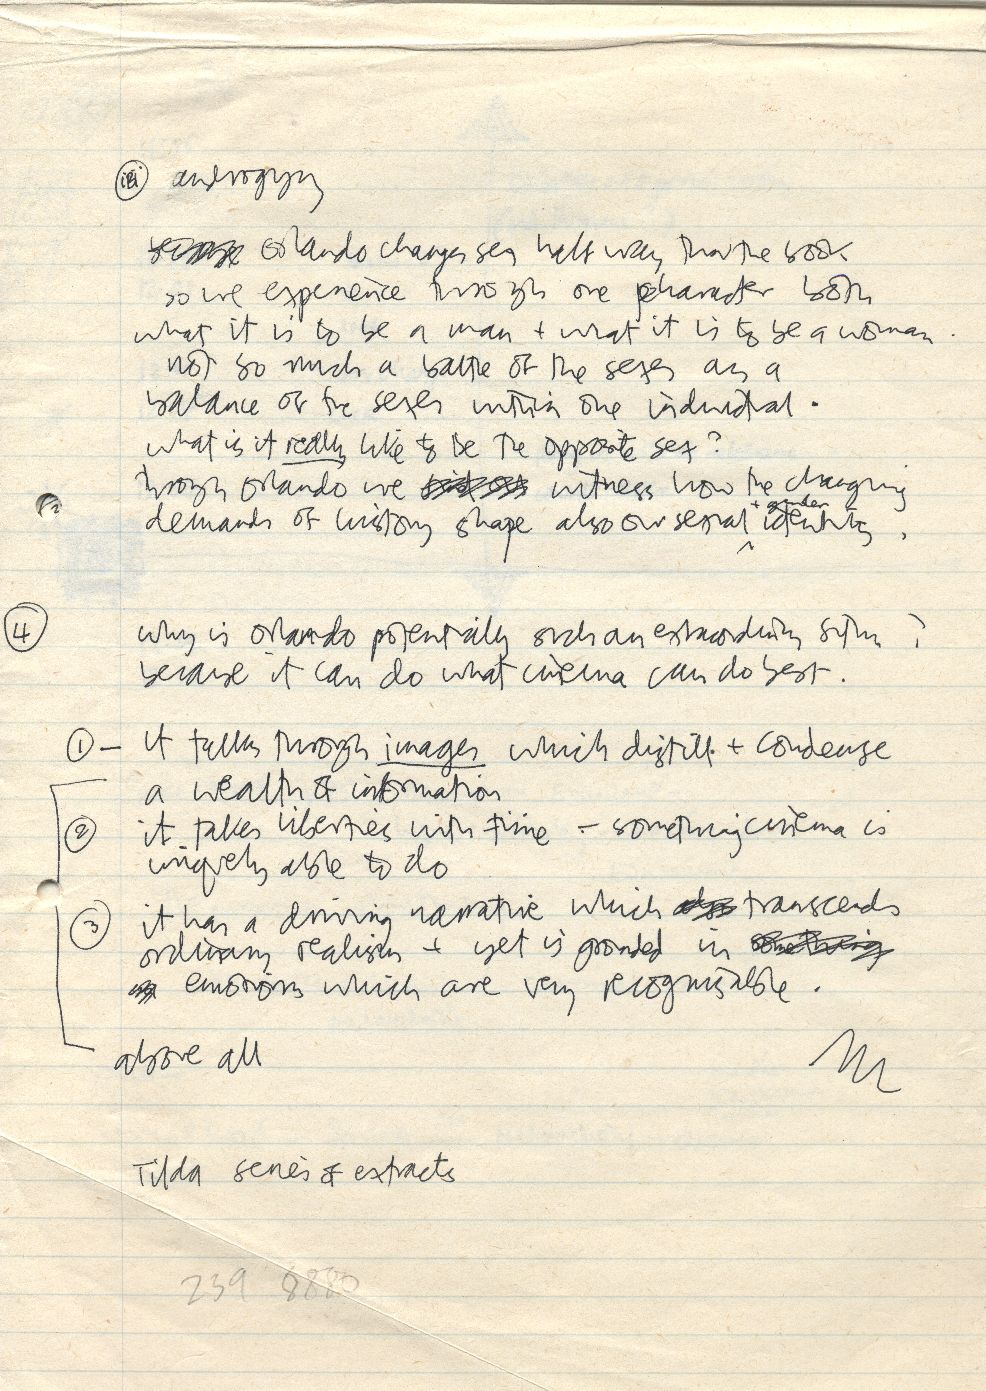 iii androgyny
Orlando changes sex half way thro' the book
so we experience through one character both
what it is to be a man + what it is to be a woman.
not so much a battle of the sexes as a
balance of the sexes within one individual.
what is it really like to be the opposite sex?
through Orlando we witness how the changing
demands of history shape also our sexual + gender identity.
4 why is Orlando potentially such an extraordinary film?
because it can do what cinema can do best.
1 – it talks through images which distill + condense
a wealth of information
2 it takes liberties with time – something cinema is
uniquely able to do
3 it has a driving narrative which transcends
ordinary realism + yet is grounded in
emotions which are very recognisable.
above all
Tilda series of extracts
239 8880